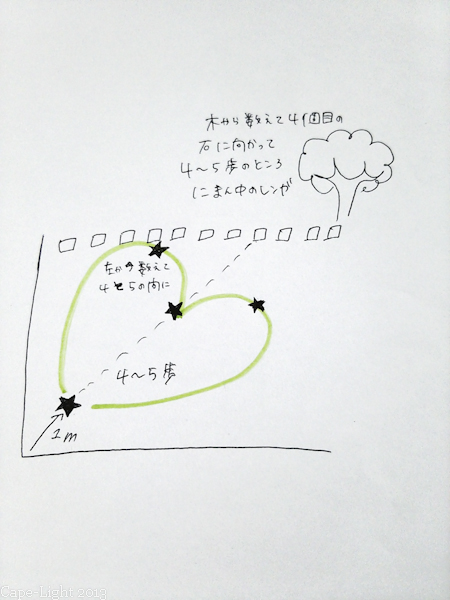 木から数えて4個目の
石に向かって
4〜5歩のところ
にまん中のレンガ
左から数えて
4と5の間に
4〜5歩
1m
Cape-Light 2019